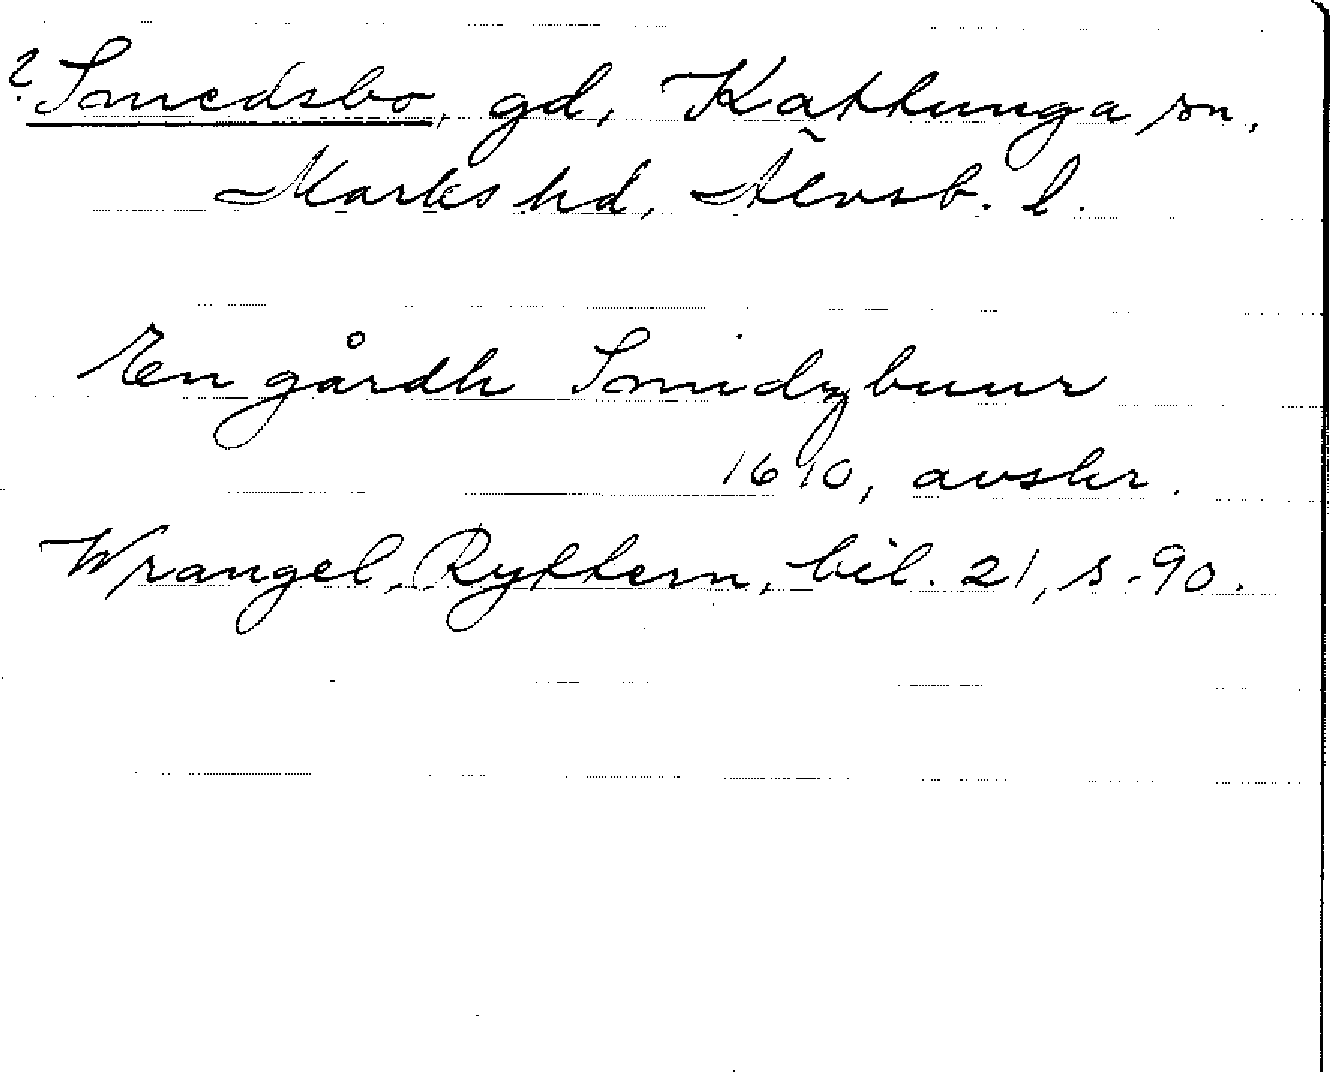 ? Smedsbo, gd, Kattunga sn,
Marks hd, Älvsb. l.
En gårdh Smidzbuur
1610, avskr.
Wrangel, Ryttern, bil. 21, s. 90.